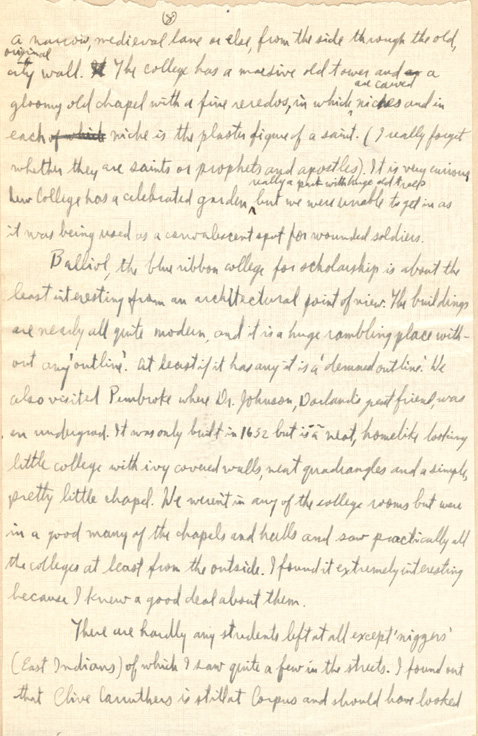 (8)
a narrow, medieval lane or else, from the side through the old,
original
city wall. The college has a massive old tower and a
are carved
gloomy old chapel with a fine reredos, in which niches and in
each of which niche is the plaster figure of a saint. (I really forget
whether they are saints or prophets and apostles). It is very curious
really a park with huge old trees
New College has a celebrated garden, but we were unable to get in as
it was being used as a convalescent spot for wounded soldiers.
Balliol, the blue ribbon college for scholarship is about the
least interesting from an architectural point of view. The buildings
are nearly all quite modern, and it is a huge rambling place with-
out any 'outline'. At least if it has any it is a 'demned outline.' We
also visited Pembroke where Dr. Johnson, great friend, was
an undergrad. It was only built in 1652 but is a neat, homelike looking
little college with ivy covered walls, neat quadrangles and a simple,
pretty little chapel. We weren't in any of the college rooms but were
in a good many of the chapels and halls and saw practically all
the colleges at least from the outside. I found it extremely interesting
because I knew a good deal about them.
There are hardly any students left at all except 'niggers'
(East Indians) of which I saw quite a few in the streets. I found out
that Clive Carruthers is still at Corpus and should have looked